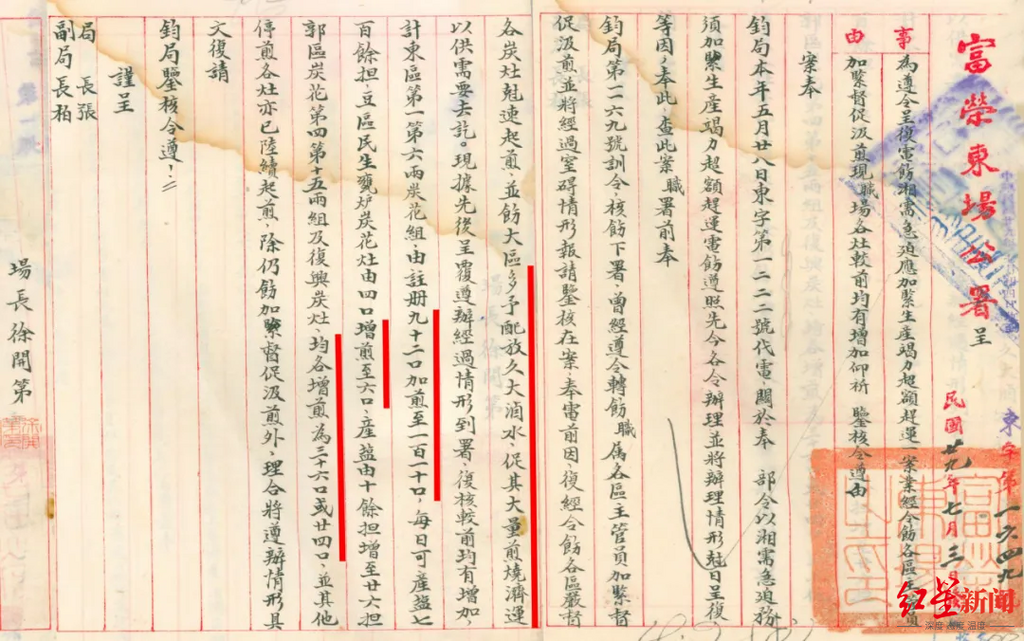 富榮東場公署 呈
東字第一六四九
民國廿九年七月三
事由
為遵令呈復電飭湘需急迫應加緊生產竭力超額趕運一案業經令飭各區主管員
加緊督促汲煎現職場各灶較前均有增加仰祈 鑒核令遵由
案奉
鈞局本年五月廿八日東字第一二二二號代電、關於奉 部令以湘需急迫務
須加緊生產竭力超額趕運電飭遵照先令各令辦理並將辦理情形尅日呈復
等因，奉此，查此案 職署前奉
鈞局第一一六九號訓令，核飭下署，曾經遵令轉飭職属各區主管員加緊督
促汲煎並將經過窒碍情形報請鑒核在案，奉電前因，復經令飭各區嚴督
各炭灶尅速起煎，並飭大區多予配放久大滷水，促其大量煎燒濟運
以供需要去訖。現據先後呈覆遵辦經過情形到署，復核較前均有增加，
計東區第一第六兩炭花組，由註册九十二口加煎至一百一十口，每日可產盐七
百餘担，豆區民生甕炉炭花灶由四口增煎至六口，產盐由十餘担增至廿六担
郭區炭花第四第十五兩組及復興炭灶，均各增煎為三十六口或廿四口，並其他
停煎各灶亦已陸續起煎，除仍飭加緊督促汲煎外，理合將遵辦情形具
文復請
鈞局鑒核令遵！
謹呈
局長張
副局長柏
場長徐開第
红星新闻
深度 态度 温度